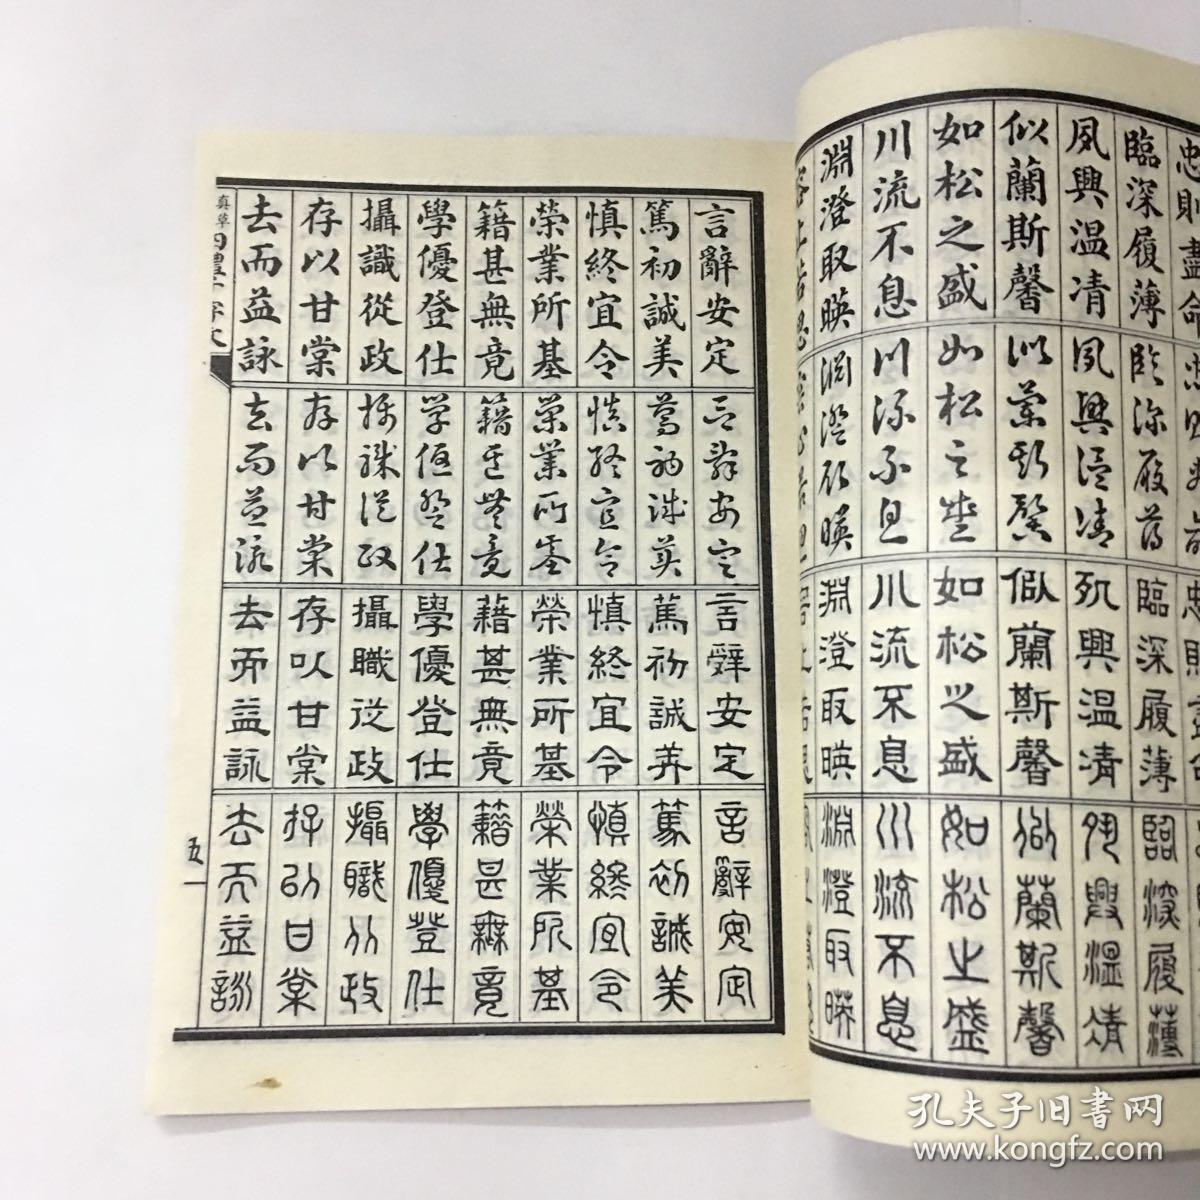 忠則盡命
臨深履薄
夙興温凊
似蘭斯馨
如松之盛
川流不息
淵澄取暎
容止若思
忠則盡命
臨深履薄
夙興温凊
似蘭斯馨
如松之盛
川流不息
淵澄取暎
容止若思
忠則盡命
臨深履薄
夙興温凊
似蘭斯馨
如松之盛
川流不息
淵澄取暎
容止若思
臨深履薄
夙興温凊
似蘭斯馨
如松之盛
川流不息
淵澄取暎
言辭安定
篤初誠美
慎終宜令
榮業所基
籍甚無竟
學優登仕
攝識從政
存以甘棠
去而益詠
言辭安定
篤初誠美
慎終宜令
榮業所基
籍甚無竟
學優登仕
攝職從政
存以甘棠
去而益詠
言辭安定
篤初誠美
慎終宜令
榮業所基
藉甚無竟
學優登仕
攝職從政
存以甘棠
去而益詠
言辭安定
篤初誠美
慎終宜令
榮業所基
籍甚無竟
學優登仕
攝職從政
存以甘棠
去而益詠
真草四體千字文
五一
孔夫子旧书网
www.kongfz.com